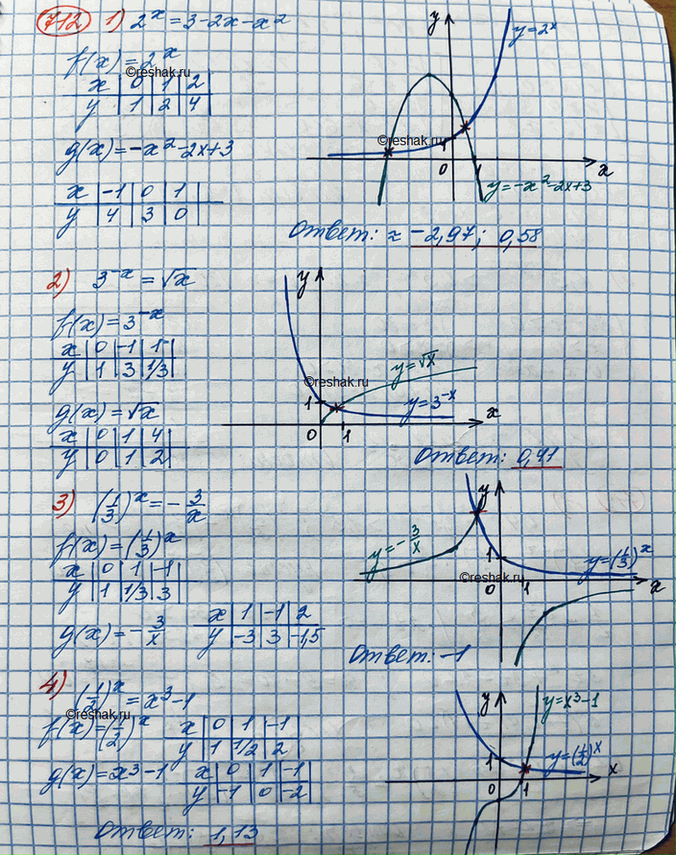 712 1) 2^x = 3-2x-x^2
f(x) = 2^x
x | 0 | 1 | 2
y | 1 | 2 | 4
g(x) = -x^2-2x+3
x | -1 | 0 | 1
y | 4 | 3 | 0
y
y=2^x
1
0
1
x
y=-x^2-2x+3
Ответ: ≈ -2,97; 0,58
2) 3^-x = √x
f(x) = 3^-x
x | 0 | -1 | 1
y | 1 | 3 | 1/3
g(x) = √x
x | 0 | 1 | 4
y | 0 | 1 | 2
y
y=√x
1
y=3^-x
x
0
1
Ответ: 0,41
3) (1/3)^x = -3/x
f(x) = (1/3)^x
x | 0 | 1 | -1
y | 1 | 1/3 | 3
g(x) = -3/x
x | 1 | -1 | 2
y | -3 | 3 | -1,5
y
y=-3/x
1
y=(1/3)^x
x
0
1
Ответ: -1
4) (1/2)^x = x^3-1
f(x) = (1/2)^x
x | 0 | 1 | -1
y | 1 | 1/2 | 2
g(x) = x^3-1
x | 0 | 1 | -1
y | -1 | 0 | -2
y
y=x^3-1
1
y=(1/2)^x
x
0
1
Ответ: 1,13
©reshak.ru
©reshak.ru
©reshak.ru
©reshak.ru
©reshak.ru